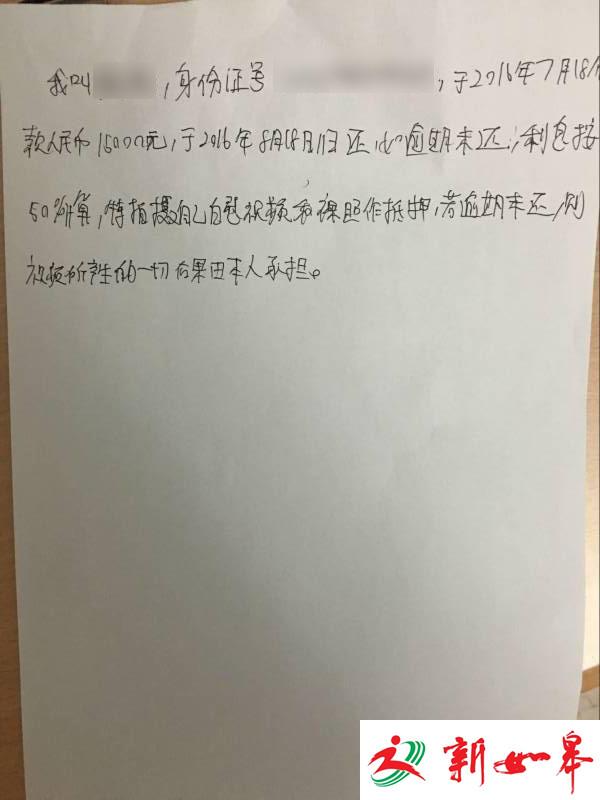 我叫 ，身份证号 ，于2016年7月18借
款人民币15000元，于2016年8月18日归还，如逾期未还，利息按
50%算，特拍摄自己自慰视频和裸照作抵押，若逾期未还，则
视频所产生的一切后果由本人承担。
新如皋